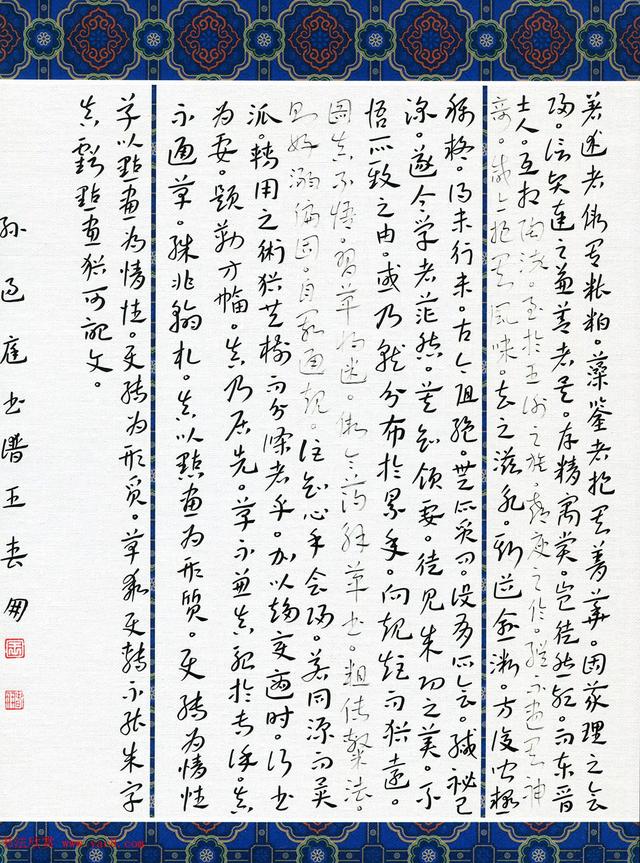 著述者假其糟粕。藻鑒者挹其菁華。固義理之會
歸。信賢達之兼善者矣。存精寓賞。豈徒然歟。而東晉
士人。互相陶染。至於王謝之族。郗庾之倫。縱不盡其神
奇。咸亦挹其風味。去之滋永。斯道愈微。方復聞疑
稱疑。得末行末。古今阻絕。無所質問。設有所會。緘祕已
深。遂令學者茫然。莫知領要。徒見成功之美。不
悟所致之由。或乃就分布於累年。向規矩而猶遠。
圖真不悟。習草將迷。假令薄解草書。粗傳隸法。
則好溺偏固。自閡通規。詎知心手會歸。若同源而異
派。轉用之術。猶共樹而分條者乎。加以趨變適時。行書
為要。題勒方幅。真乃居先。草不兼真。殆於專謹。真
不通草。殊非翰札。真以點畫為形質。使轉為情性
草以點畫為情性。使轉為形質。草乖使轉。不能成字
真虧點畫。猶可記文。
孫過庭書譜王